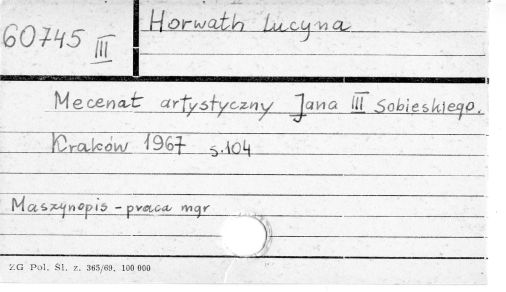 60745 III
Horwath Lucyna
Mecenat artystyczny Jana III Sobieskiego.
Kraków 1967 s.104
Maszynopis - praca mgr
ZG Pol. Śl. z. 365/69. 100 000